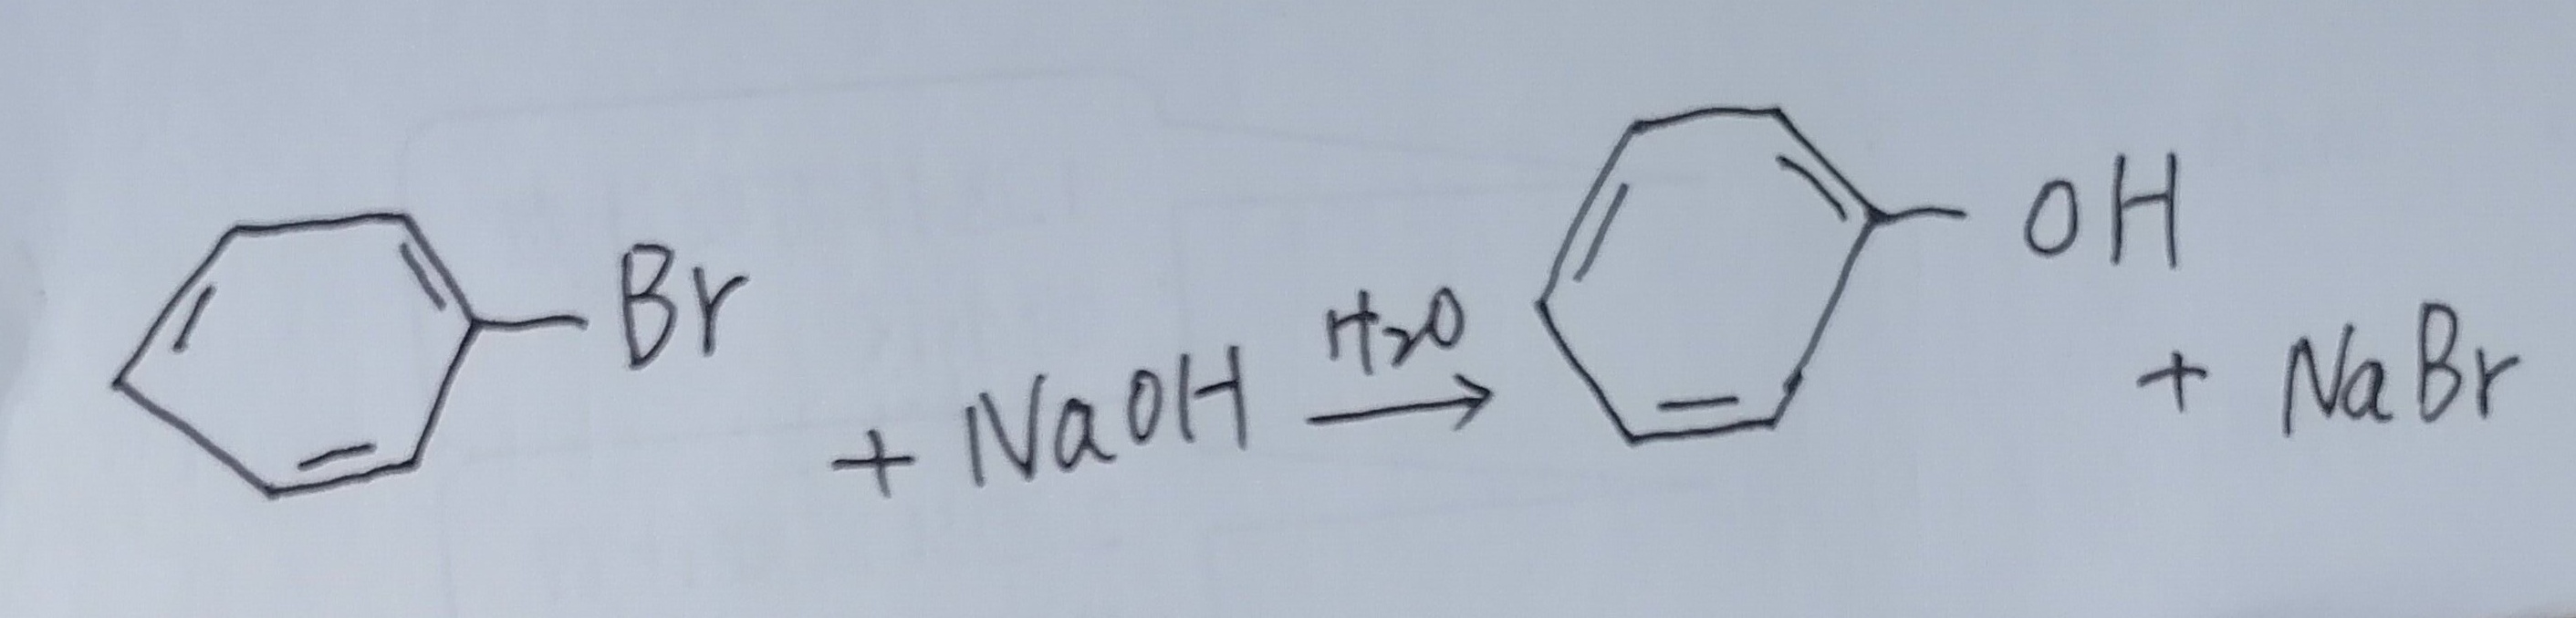 Br + NaOH H2O → OH + NaBr